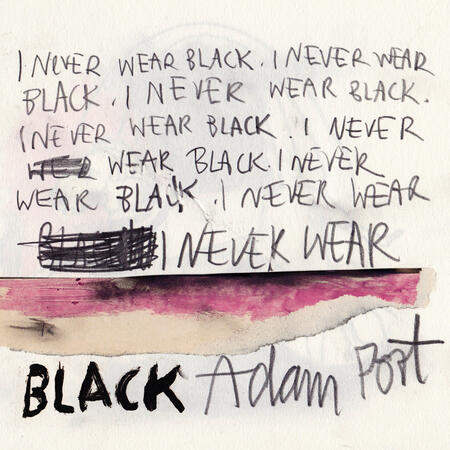 I NEVER WEAR BLACK. I NEVER WEAR
BLACK. I NEVER WEAR BLACK.
I NEVER WEAR BLACK. I NEVER
WEAR BLACK. I NEVER
WEAR BLACK. I NEVER WEAR
I NEVER WEAR
BLACK Adam Port